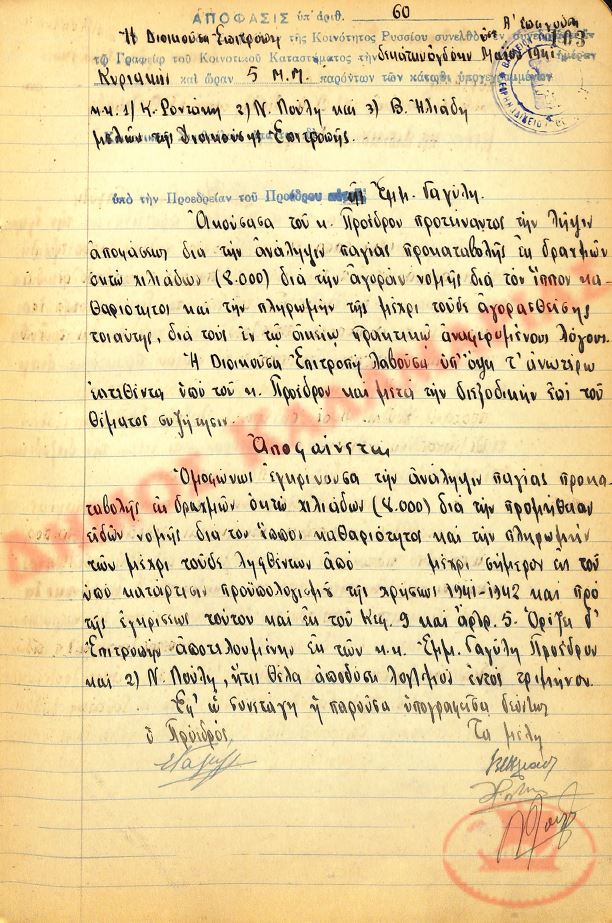 ΑΠΟΦΑΣΙΣ ὑπ' ἀριθ. 60
Ἡ Διοικοῦσα Ἐπιτροπὴ τῆς Κοινότητος Ρυσσίου συνελθοῦσα
τῷ Γραφείῳ τοῦ Κοινοτικοῦ Καταστήματος τὴν δεκάτην ὀγδόην Μαΐου 1941 ἡμέραν
103
Κυριακὴ καὶ ὥραν 5 Μ.Μ. παρόντων τῶν κάτωθι ὑπογεγραμμένων
κ.κ. 1/ Κ. Ροντάκη 2) Ν. Πουλῆ καὶ 3) Β. Ἠλιάδη
μελῶν τῆς Διοικούσης Ἐπιτροπῆς.
ὑπὸ τὴν Προεδρείαν τοῦ Προέδρου Ἐμμ. Γαγύλη.
Ἀκούσασα τοῦ κ. Προέδρου προτείναντος τὴν λῆψιν
ἀποφάσεως διὰ τὴν ἀνάληψιν παγίας προκαταβολῆς ἐκ δραχμῶν
ὀκτὼ χιλιάδων (8.000) διὰ τὴν ἀγορὰν νομῆς διὰ τὸν ἵππον κα-
θαριότητος καὶ τὴν πληρωμὴν τῆς μέχρι τοῦδε ἀγορασθείσης
τοιαύτης, διὰ τοὺς ἐν τῷ οἰκείῳ πρακτικῷ ἀναφερομένους λόγους.
Ἡ Διοικοῦσα Ἐπιτροπὴ λαβοῦσα ὑπ' ὄψει τ' ἀνωτέρω
ἐκτεθέντα ὑπὸ τοῦ κ. Προέδρου καὶ μετὰ τὴν διεξοδικὴν ἐπὶ τοῦ
θέματος συζήτησιν.
Ἀποφαίνεται
Ὁμοφώνως ἐγκρίνουσα τὴν ἀνάληψιν παγίας προκα-
ταβολῆς ἐκ δραχμῶν ὀκτὼ χιλιάδων (8.000) διὰ τὴν προμήθειαν
εἰδῶν νομῆς διὰ τὸν ἵππον καθαριότητος καὶ τὴν πληρωμὴν
τῶν μέχρι τοῦδε ληφθέντων ἀπὸ μέχρι σήμερον ἐκ τοῦ
ὑπὸ κατάρτισιν προϋπολογισμοῦ τῆς χρήσεως 1941-1942 καὶ πρὸ
τῆς ἐγκρίσεως τούτου καὶ ἐκ τοῦ Κεφ. 9 καὶ ἄρθρ. 5. Ὁρίζει δ'
Ἐπιτροπὴν ἀποτελουμένην ἐκ τῶν κ.κ. Ἐμμ. Γαγύλη Προέδρου
καὶ 2) Ν. Πουλῆ, ἥτις θέλει ἀποδώσῃ λογ/σμὸν ἐντὸς τριμήνου.
Ἐφ' ᾧ συνετάγη ἡ παροῦσα ὑπογραφεῖσα δεόντως
ὁ Πρόεδρος Τὰ μέλη